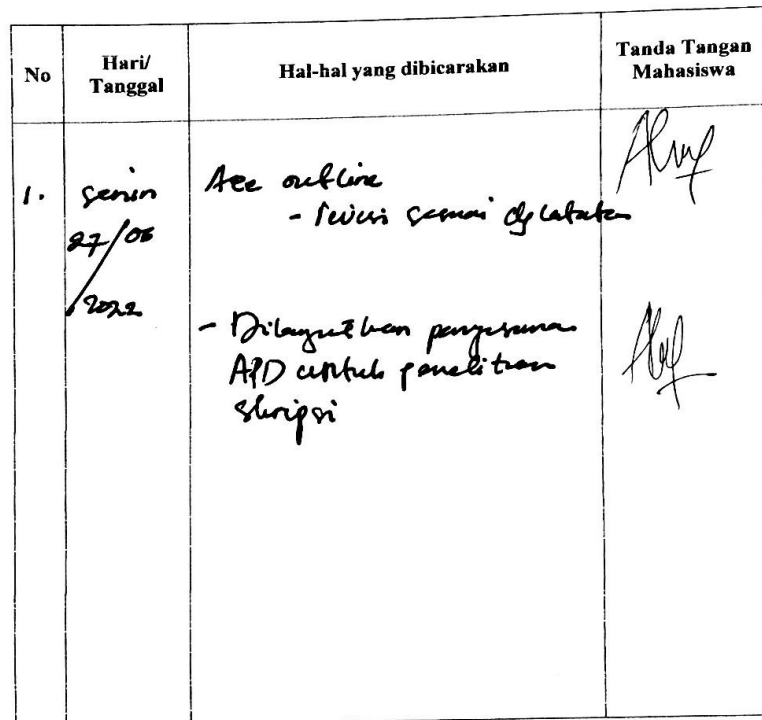 No
Hari/
Tanggal
Hal-hal yang dibicarakan
Tanda Tangan
Mahasiswa
1.
Senin
27/06
/2022
Acc outline
- Revisi sesuai dg catatan
- Dilanjutkan penyusunan
APD untuk penelitian
skripsi